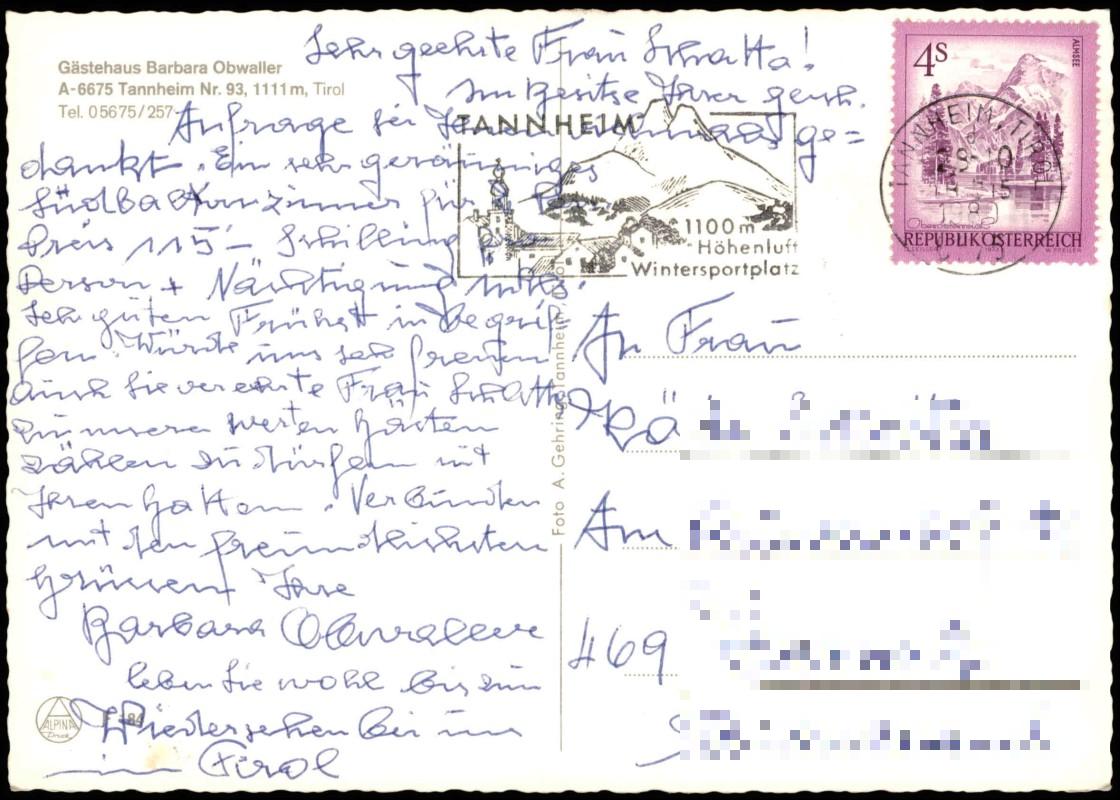 Gästehaus Barbara Obwaller
A-6675 Tannheim Nr. 93, 1111 m, Tirol
Tel. 05675/257
Sehr geehrte Frau
Im Besitze Ihrer gesch.
Anfrage sei ge=
dankt. Ein sehr geräumiges
Südbalkonzimmer für 2
Preis 115.- Schilling pro
Person + Nächtigung inkl.
Sehr guten Frühst. inbegrif=
fen. Würde uns sehr freuen
auch Sie verehrte Frau
zu unseren werten Gästen
zählen zu dürfen mit
Ihren Gatten. Verbunden
mit den freundlichsten
Grüssen Ihre
Barbara Obwaller
leben Sie wohl bis zum
Wiedersehen bei uns
in Tirol
ALPINA
Druck
Foto A. Gehring, Tannheim
TANNHEIM
1100 m
Höhenluft
Wintersportplatz
4S
ALMSEE
REPUBLIK ÖSTERREICH
TANNHEIM, TIROL
An Frau
Am
469